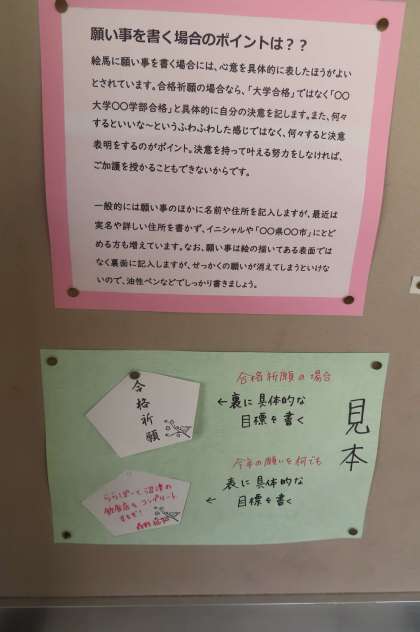 願い事を書く場合のポイントは？？
絵馬に願い事を書く場合には、心意を具体的に表したほうがよい
とされています。合格祈願の場合なら、「大学合格」ではなく「〇〇
大学〇〇学部合格」と具体的に自分の決意を記します。また、何々
するといいな～というふわふわした感じではなく、何々すると決意
表明をするのがポイント。決意を持って叶える努力をしなければ、
ご加護を授かることもできないからです。
一般的には願い事のほかに名前や住所を記入しますが、最近は
実名や詳しい住所を書かず、イニシャルや「〇〇県〇〇市」にとど
める方も増えています。なお、願い事は絵の描いてある表面では
なく裏面に記入しますが、せっかくの願いが消えてしまうといけな
いので、油性ペンなどでしっかり書きましょう。
見本
合格祈願の場合
←裏に具体的な
目標を書く
合格祈願
今年の願いを何でも
表に具体的な
← 目標を書く
ららぽーと沼津の
飲食店をコンプリート
するぞ！